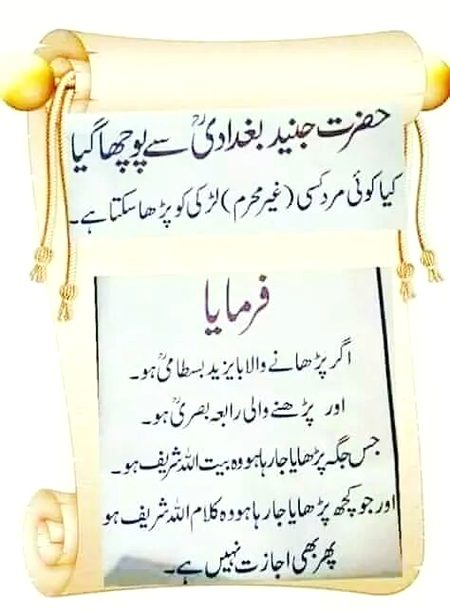 حضرت جنید بغدادیؒ سے پوچھا گیا
کیا کوئی مرد کسی (غیر محرم) لڑکی کو پڑھا سکتا ہے۔
فرمایا
اگر پڑھانے والا بایزید بسطامیؒ ہو۔
اور پڑھنے والی رابعہ بصریؒ ہو۔
جس جگہ پڑھایا جا رہا ہو وہ بیت اللہ شریف ہو۔
اور جو کچھ پڑھایا جا رہا ہو وہ کلام اللہ شریف ہو
پھر بھی اجازت نہیں ہے۔